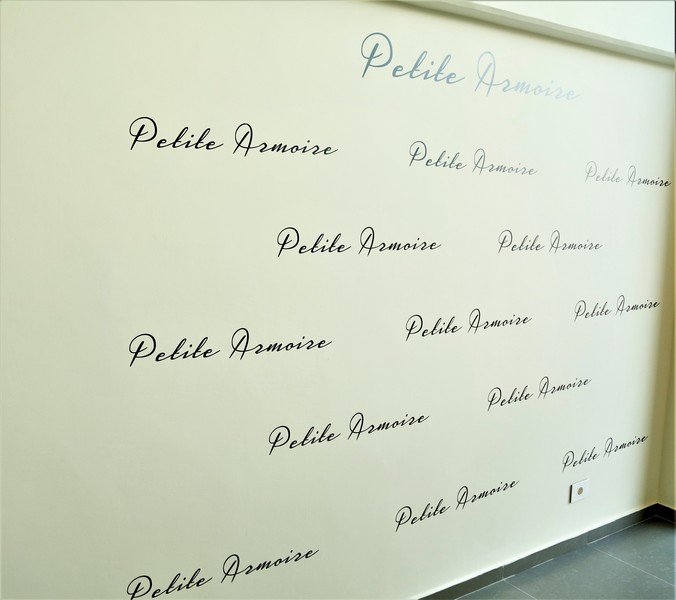 Petite Armoire
Petite Armoire
Petite Armoire
Petite Armoire
Petite Armoire
Petite Armoire
Petite Armoire
Petite Armoire
Petite Armoire
Petite Armoire
Petite Armoire
Petite Armoire
Petite Armoire
Petite Armoire